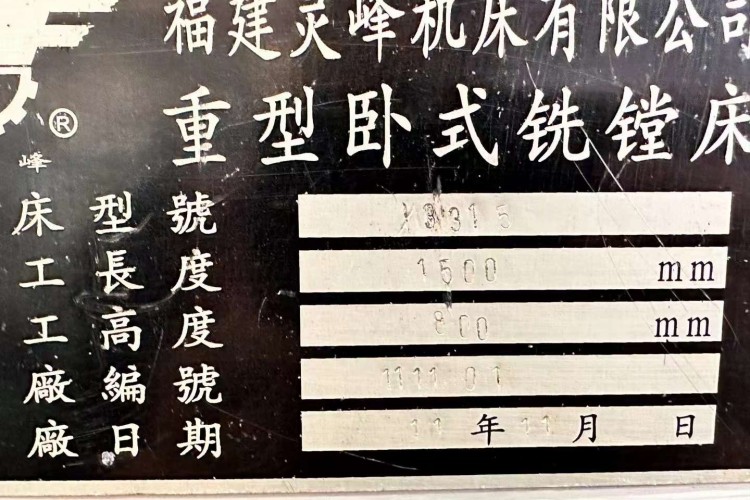 福建灵峰机床有限公司
®
重型卧式铣镗床
峰
床型號 X3315
工長度 1500 mm
工高度 800 mm
廠編號 111101
廠日期 11年11月 日